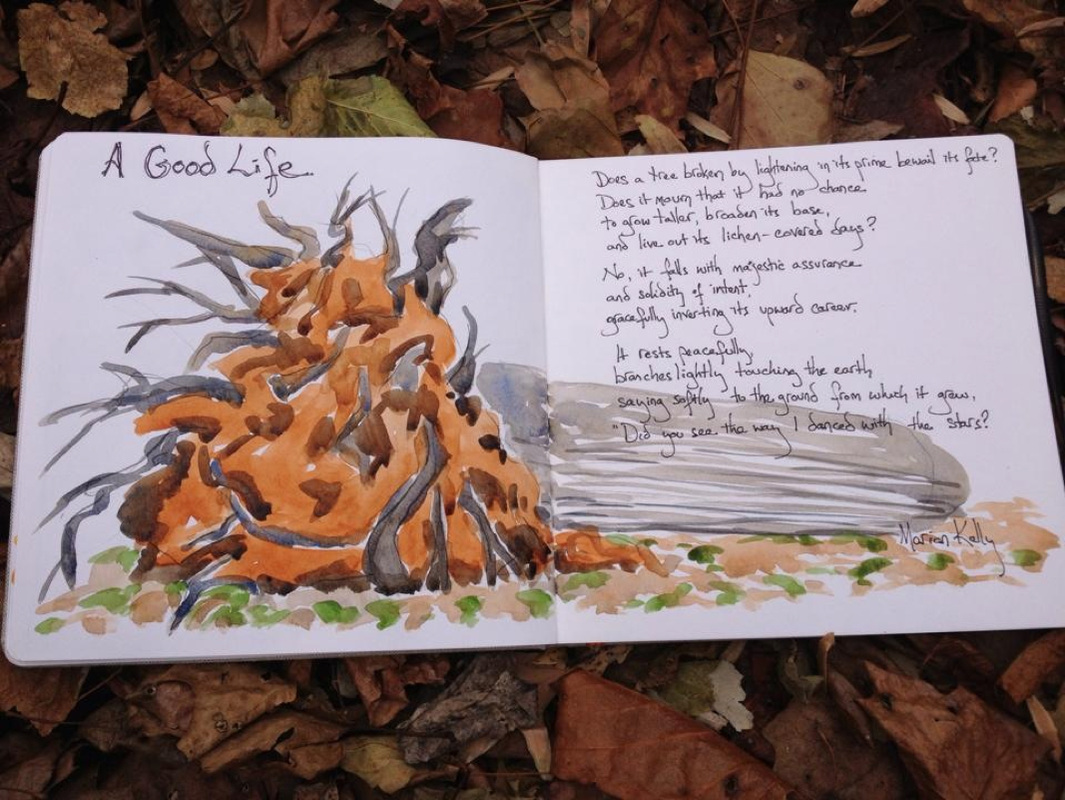 A Good Life.
Does a tree broken by lightening in its prime bewail its fate?
Does it mourn that it had no chance
to grow taller, broaden its base,
and live out its lichen-covered days?
No, it falls with majestic assurance
and solidity of intent,
gracefully inverting its upward career.
It rests peacefully,
branches lightly touching the earth
saying softly to the ground from which it grew,
"Did you see the way I danced with the stars?
Marion Kelly